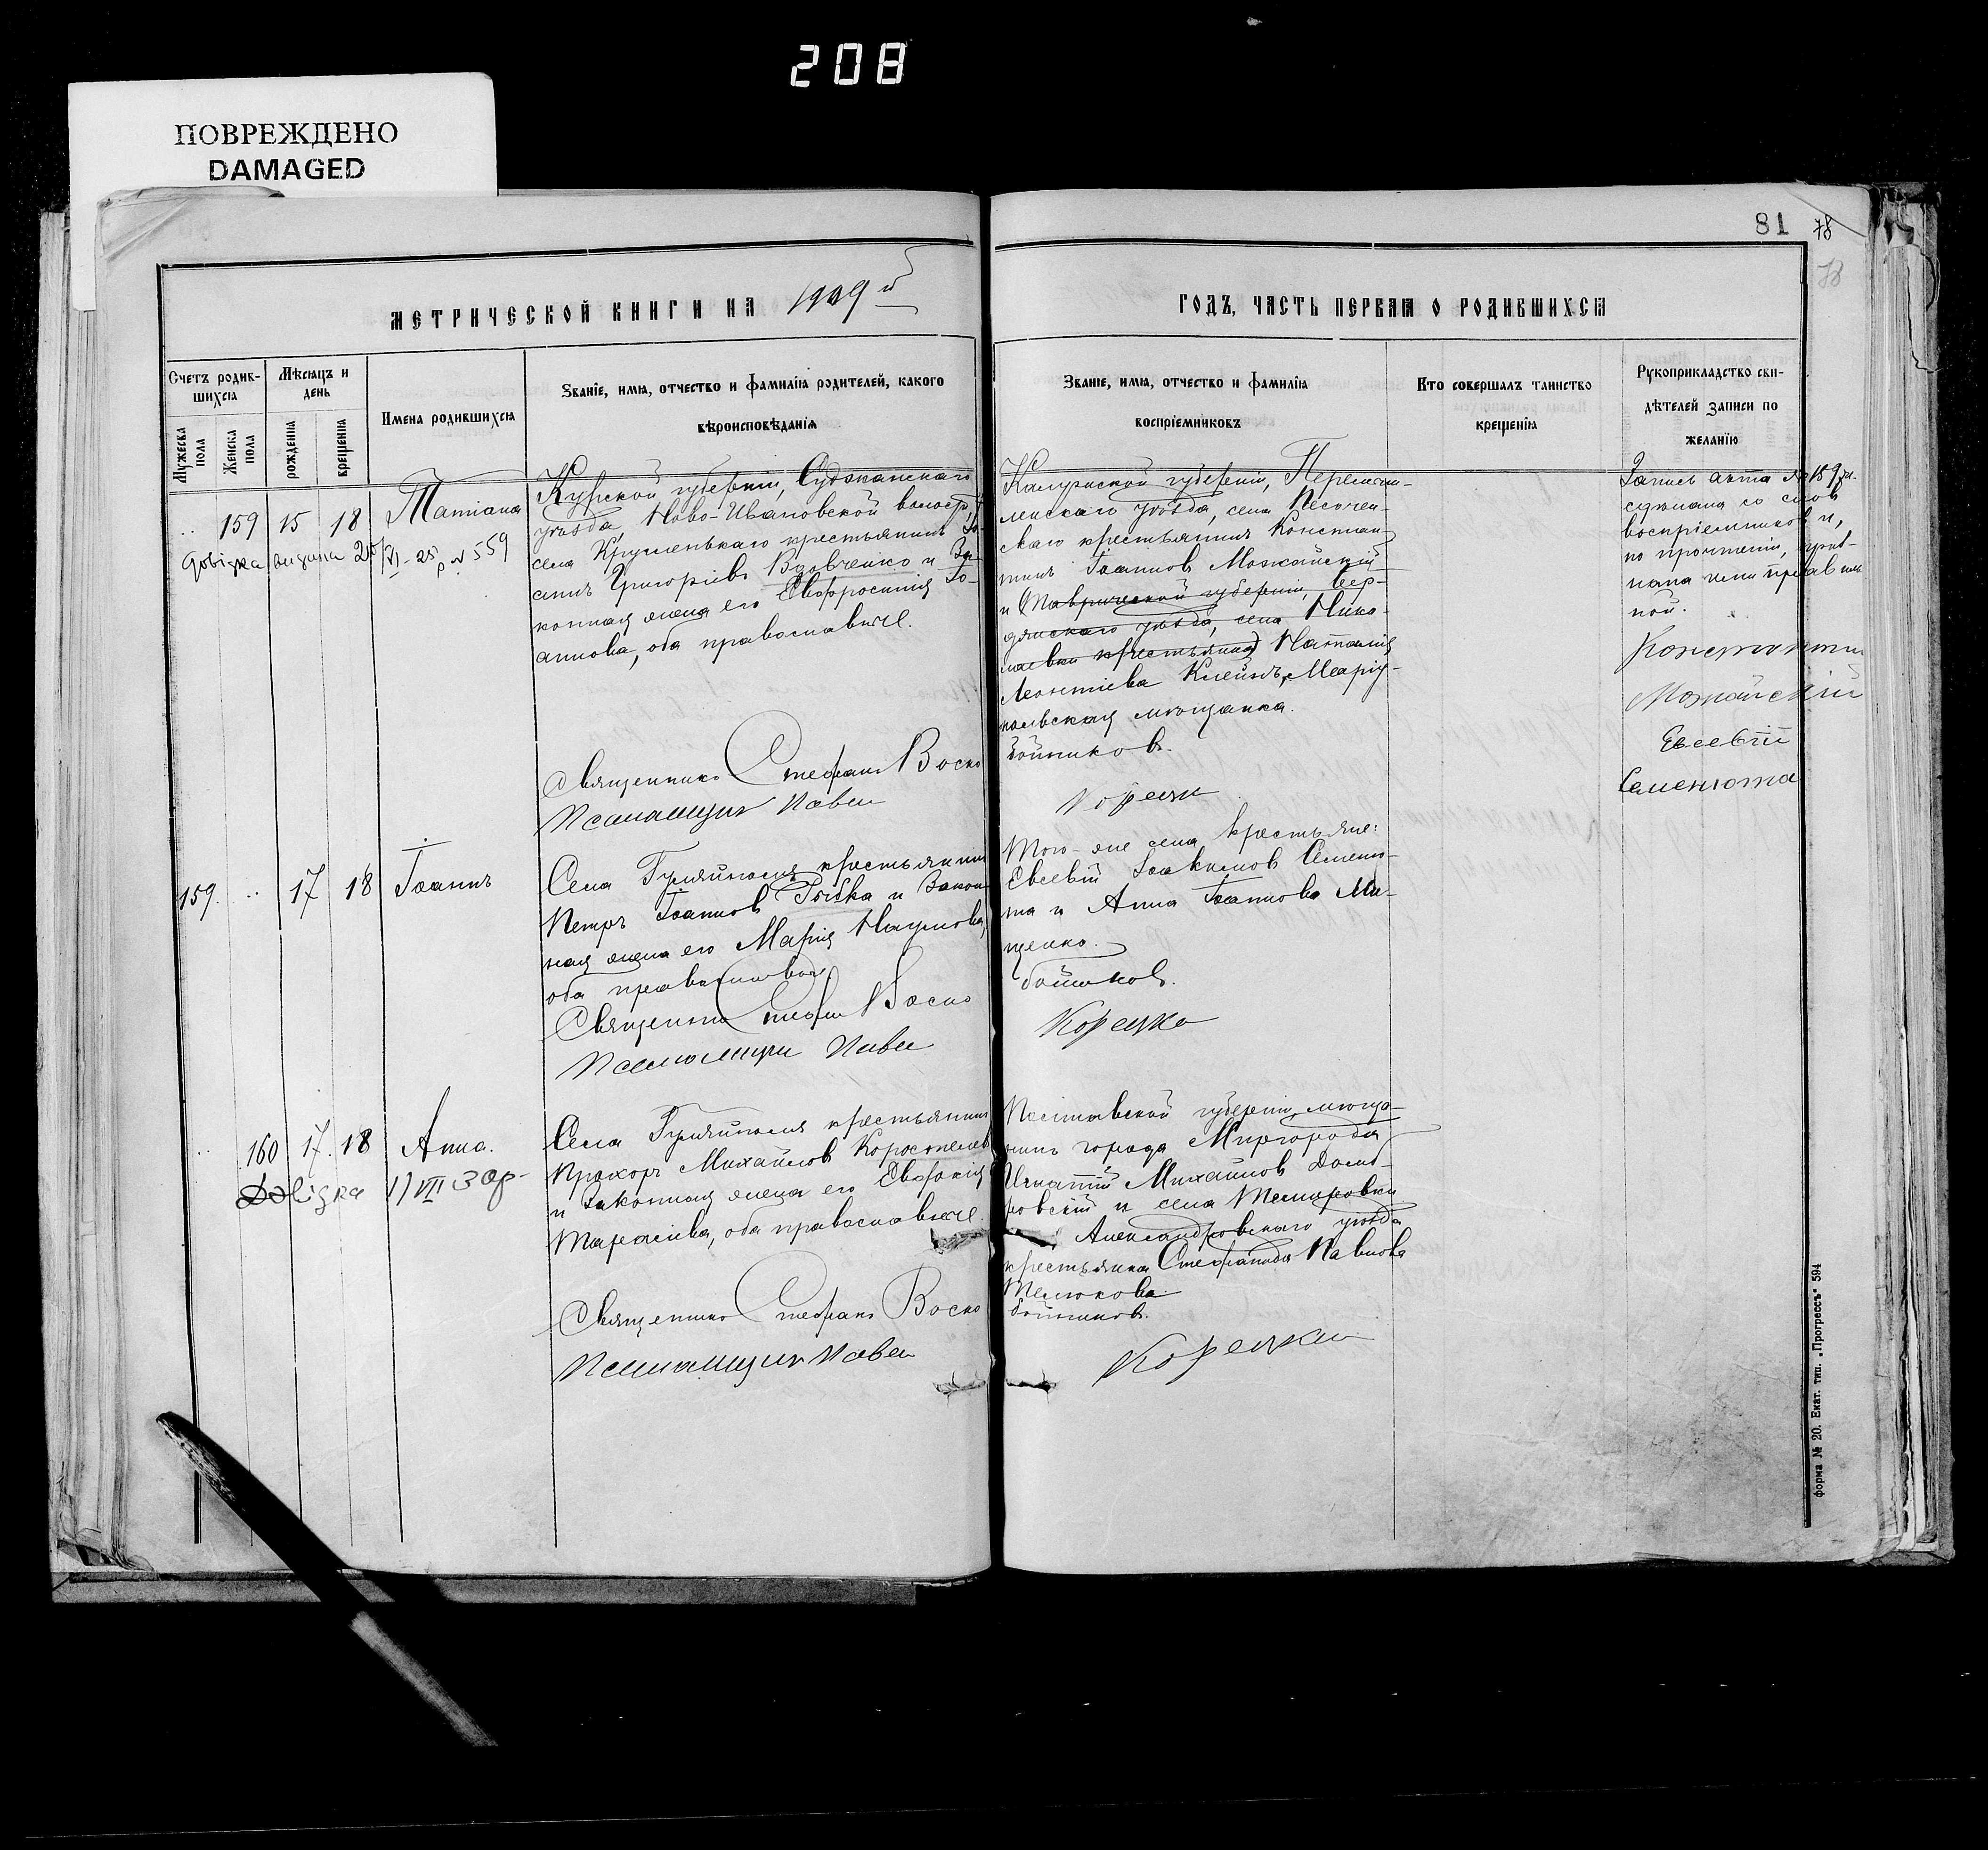 208
ПОВРЕЖДЕНО
DAMAGED
81 78
78
МЕТРИЧЕСКОЙ КНИГИ НА 1909й
ГОДЪ, ЧАСТЬ ПЕРВАЯ О РОДИВШИХСЯ
Счетъ родившихся
Мужеска пола
Женска пола
Мѣсяцъ и день
рожденія
крещенія
Имена родившихся
Званіе, имя, отчество и фамилія родителей, какого
вѣроисповѣданія
Званіе, имя, отчество и фамилія
воспріемниковъ
Кто совершалъ таинство
крещенія
Рукоприкладство сви-
дѣтелей записи по
желанію
159 15 18 Татіана
Довідка видана 25/VI-25 р. N 559
Курской губерніи, Суджанскаго
уѣзда, Ново-Ивановской волости,
села Кругленькаго крестьянинъ Іо-
аннъ Григоріевъ Вдовченко и за-
конная жена его Евфросинія Іо-
аннова, оба православные.
Священникъ Стефанъ Воско
Псаломщикъ Павел
Калужской губерніи, Перемыш-
льскаго уѣзда, села Песочен-
скаго крестьянинъ Констан-
тинъ Іоанновъ Можайскій
и (Таврической губерніи, Бер-
дянскаго уѣзда, села Нико-
лаевки крестьянка) Наталія
Леонтіева Клейнъ, Маріу-
польская мѣщанка.
бойниковъ.
Корецки
Запись акта № 159 ж.
сдѣлана со словъ
воспріемниковъ и,
по прочтеніи, приз-
нана ими правиль
ной.
Константин
Можайскій
Евсевій
Семенюта
159 17 18 Іоаннъ
Села Гуляйполя крестьянинъ
Петръ Іоанновъ Рыбка и закон-
ная жена его Марія Наумова,
оба православные
Священникъ Стефанъ Воско
Псаломщикъ Павел
Того-же села крестьяне:
Евсевій Іоакимовъ Семеню-
та и Анна Іоаннова Ми-
щенко.
бойниковъ.
Корецки
160 17 18 Анна.
Довідка 1) VII 30р.
Села Гуляйполя крестьянинъ
Прохоръ Михайловъ Коростелевъ
и законная жена его Евфимія
Тарасіева, оба православные.
Священникъ Стефанъ Воско
Псаломщикъ Павел
Полтавской губерніи, мѣща-
нинъ города Миргорода
Игнатій Михайловъ Домб-
ровскій и села Темировки
Александровскаго уѣзда
крестьянка Стефанида Павлова
Телюкова.
бойниковъ.
Корецки
форма № 20. Екат. тип. „Прогрессъ“ 594